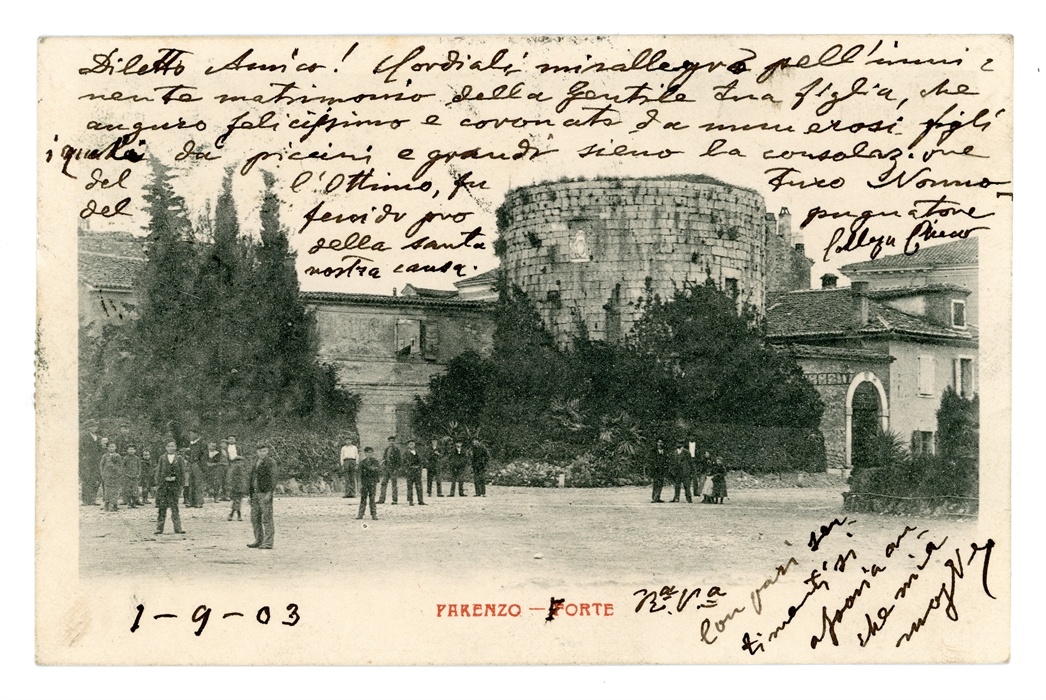 Diletto Amico! Cordiali mirallegro pell'immi
nente matrimonio della Gentile Sua figlia, che
auguro felicissimo e coronato da numerosi figli
i quali da piccini e grandi sieno la consolazione
del l'Ottimo, fu turo Nonno
del fervido pro pugnatore
della santa
nostra causa.
1-9-03
PARENZO — FORTE
Con pari sen-
timenti si
associa an-
che mia